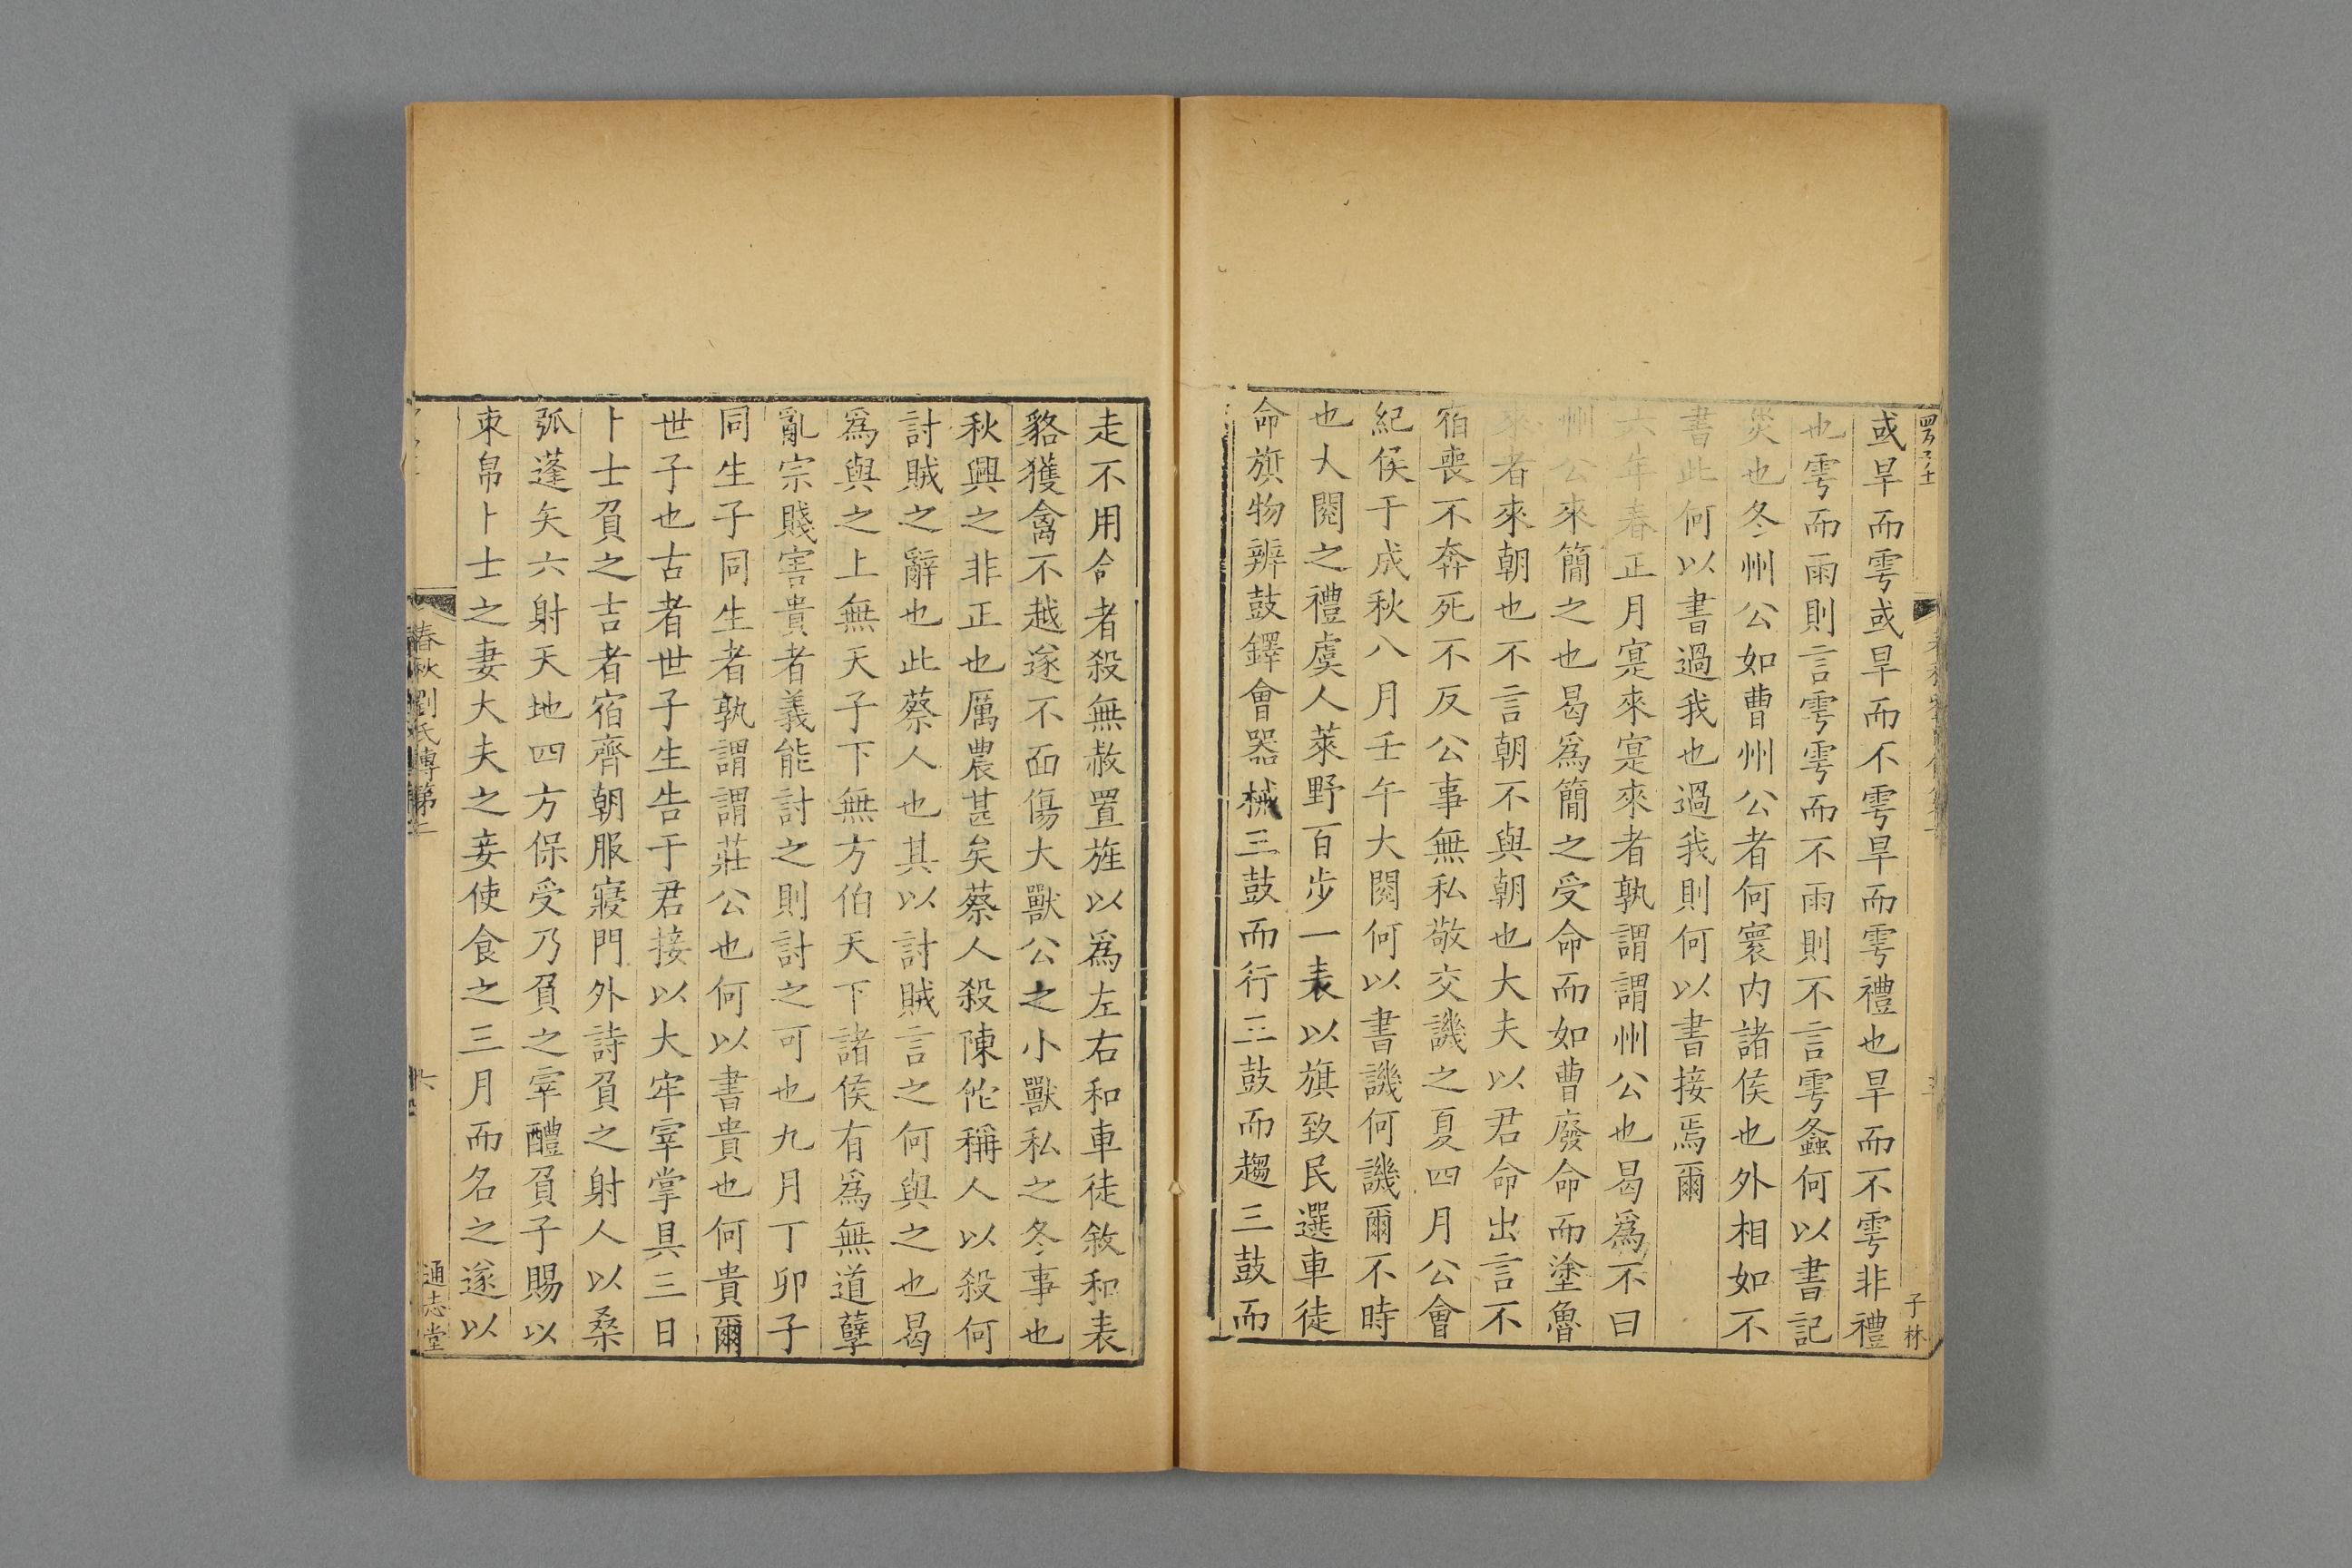 或旱而雩或旱而不雩旱而雩禮也旱而不雩非禮
也雩而雨則言雩雩而不雨則不言雩螽何以書記
災也冬州公如曹州公者何寰内諸侯也外相如不
書此何以書過我也過我則何以書接焉爾
六年春正月寔來寔來者孰謂謂州公也曷爲不曰
州公來簡之也曷爲簡之受命而如曹廢命而塗魯
來者來朝也不言朝不與朝也大夫以君命出言不
宿喪不奔死不反公事無私敬交譏之夏四月公會
紀侯于成秋八月壬午大閱何以書譏何譏爾不時
也大閱之禮虞人萊野百步一表以旗致民選車徒
命旗物辨鼓鐸會器械三鼓而行三鼓而趨三鼓而
子林
走不用合者殺無赦置旌以爲左右和車徒敘和表
貉獲禽不越逐不面傷大獸公之小獸私之冬事也
秋興之非正也厲農甚矣蔡人殺陳佗稱人以殺何
討賊之辭也此蔡人也其以討賊言之何與之也曷
爲與之上無天子下無方伯天下諸侯有爲無道孽
亂宗賤害貴者義能討之則討之可也九月丁卯子
同生子同生者孰謂謂莊公也何以書貴也何貴爾
世子也古者世子生告于君接以大牢宰掌具三日
卜士負之吉者宿齊朝服寢門外詩負之射人以桑
弧蓬矢六射天地四方保受乃負之宰醴負子賜以
束帛卜士之妻大夫之妾使食之三月而名之遂以
春秋劉氏傳第二
六
通志堂